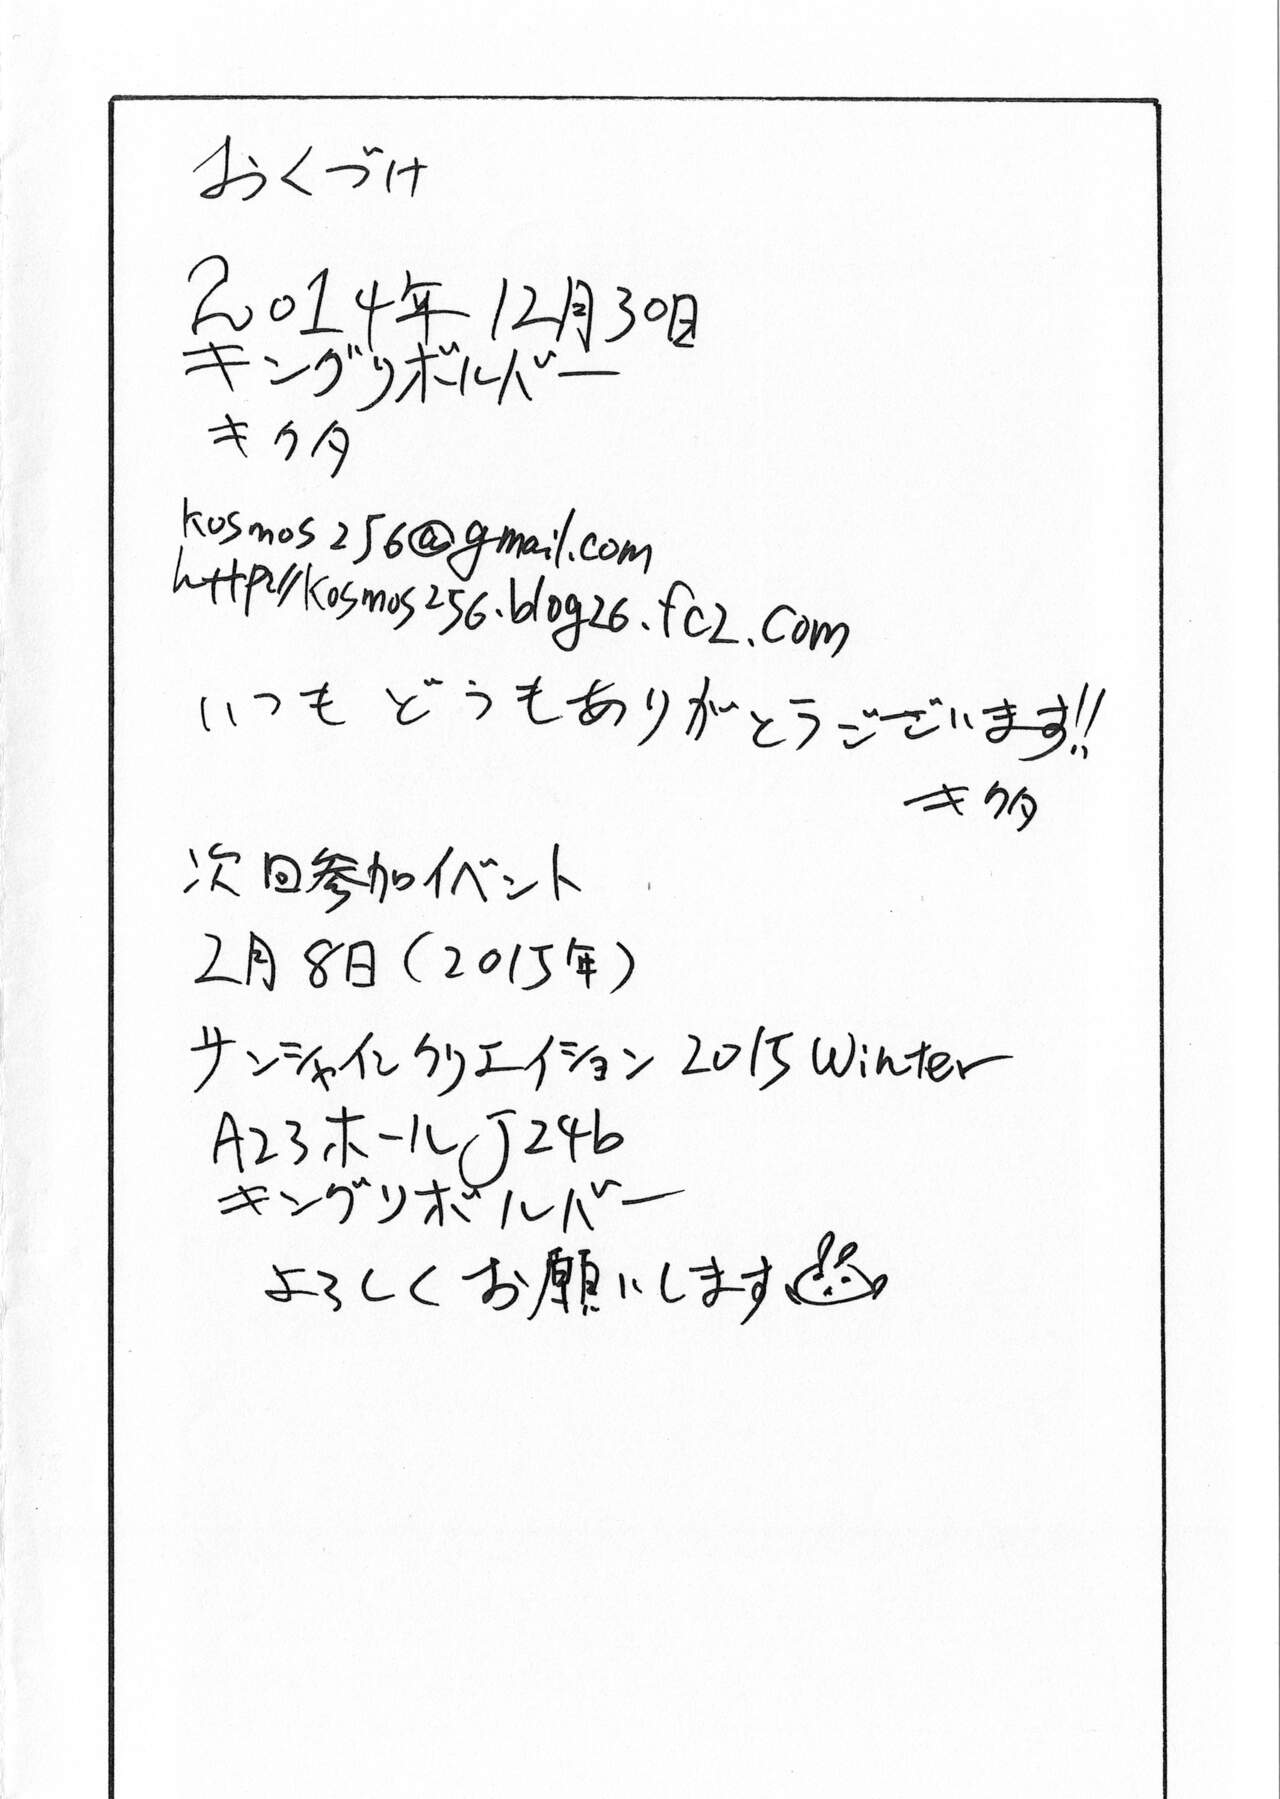 おくづけ
2014年 12月30日
キングリボルバー
キクタ
kosmos256@gmail.com
http://kosmos256.blog26.fc2.com
いつも どうもありがとうございます!!
キクタ
次回参加イベント
2月8日(2015年)
サンシャインクリエイション 2015 Winter
A23ホール J24b
キングリボルバー
よろしくお願いします